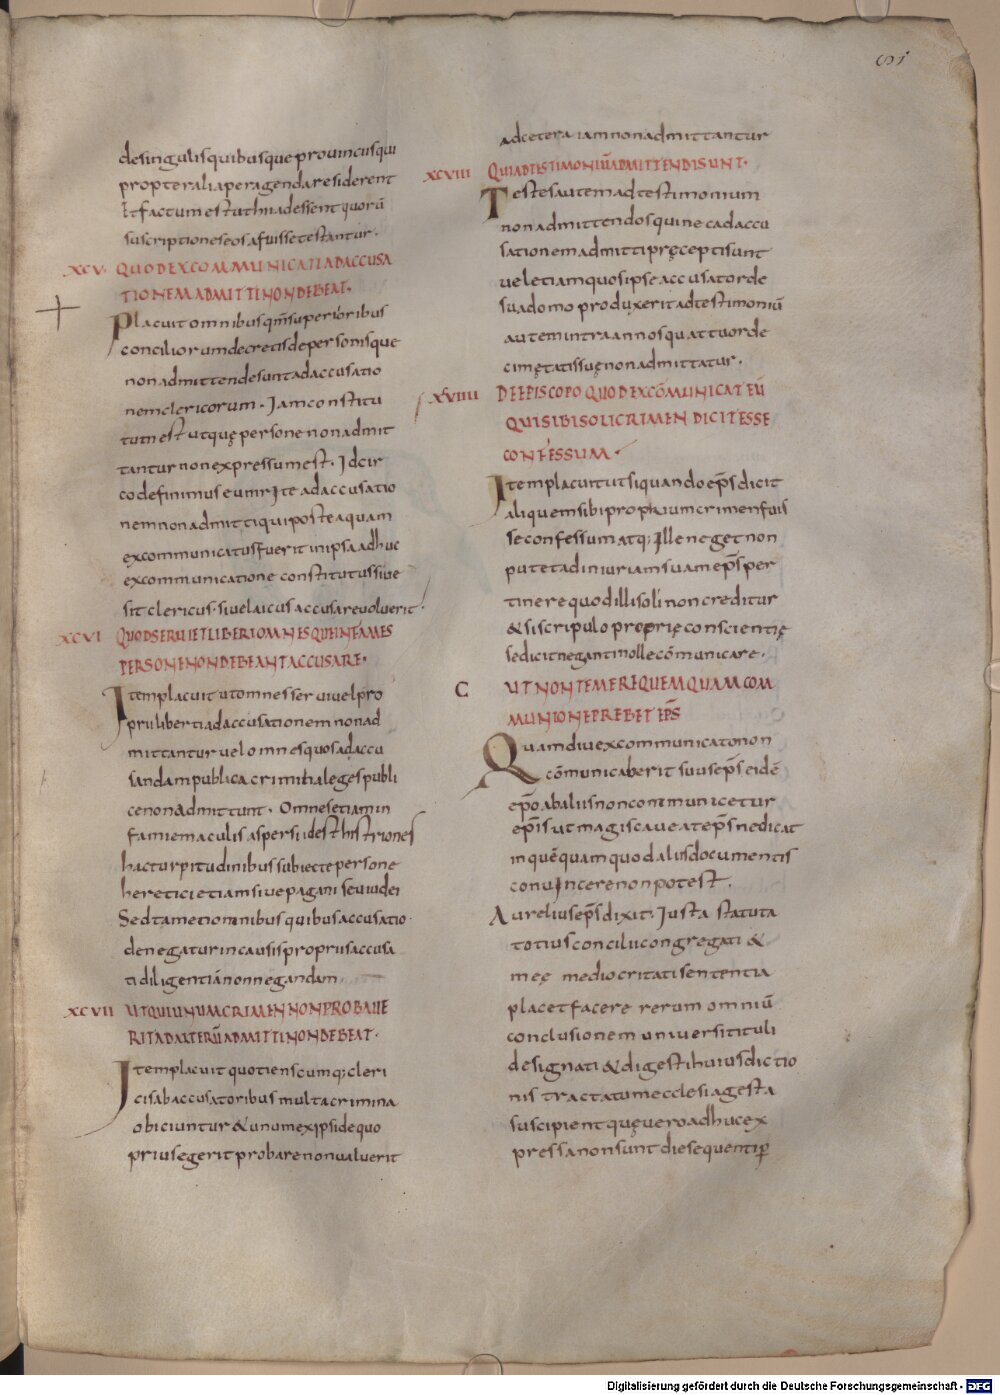 desingulisquibusqueprouinciisqui
propteraliaperagendaresiderent
Etfactumestuthiiadessentquorū
suscriptioneseosafuissetestantur.
XCV. QUODEXCOMMUNICATIADACCUSA
TIONEMADMITTINONDEBEAT.
Placuitomnibusqmsuperioribus
conciliorumdecretisdepersonisque
nonadmittendesuntadaccusatio
nemclericorum. Jamconstitu
tumestutquępersonenonadmit
tanturnonexpressumest. Jdcir
codefinimuseumriteadaccusatio
nemnonadmittiquiposteaquam
excommunicatusfueritinipsaadhuc
excommunicatione constitutussiue
sitclericus.siuelaicusaccusareuoluerit.
XCVI QUODSERUIETLIBERIOMNESQUEINFAMES
PERSONENONDEBEANTACCUSARE.
Jtemplacuitutomnesseruiuelpro
priilibertiadaccusationemnonad
mittanturuelomnesquosadaccu
sandampublicacriminalegespubli
cenonadmittunt. Omnesetiamin
famiemaculisaspersiidesthistriones
hacturpitudinibussubiectepersone
hereticietiamsiuepaganiseuiudei
Sedtametiomnibusquibusaccusatio
denegaturincausispropriisaccusa
tidiligentiānonnegandam
XCVII UTQUIUNUMCRIMENNONPROBAUE
RITADALTERŪADMITTINONDEBEAT.
Jtemplacuitquotienscumq;cleri
cisabaccusatoribusmultacrimina
obiciuntur&unumexipsidequo
priusegeritprobarenonualuerit
adceteraiamnonadmittantur
XCVIII QUIADTESTIMONIŪADMITTENDISUNT.
Testesautemadtestimonium
nonadmittendosquinecadaccu
sationemadmittipręceptisunt
ueletiamquosipseaccusatorde
suadomoproduxeritadtestimoniū
autemintraannosquattuorde
cimętatissuęnonadmittatur.
XVIIII DEEPISCOPOQUODEXCŌMUNICATEŪ
QUISIBISOLICRIMENDICITESSE
CONFESSUM.
Jtemplacuitutsiquandoep̄sdicit
aliquemsibipropriumcrimenfuis
seconfessumatq;illeneget non
putetadiniuriamsuamep̄sper
tinerequodillisolinoncreditur
&siscripuloproprięconscientię
sedicitnegantinollecōmunicare.
C UTNONTEMEREQUEMQUAMCOM
MUNIONEPREBETEP̄S
Quamdiuexcommunicatonon
cōmunicaberitsuusep̄seidē
ep̄oabaliisnoncommunicetur
ep̄isutmagiscaueatep̄snedicat
inquēquamquodaliisdocumentis
conuincerenonpotest.
Aureliusep̄sdixit. Justa statuta
totiusconciliicongregati &
meę mediocritatisententia
placetfacere rerum omniū
conclusionem uniuersitituli
designati&digestihuiusdictio
nis tractatumecclesiagesta
suscipientquęueroadhucex
pressanonsuntdiesequentip̄
Digitalisierung gefördert durch die Deutsche Forschungsgemeinschaft - DFG